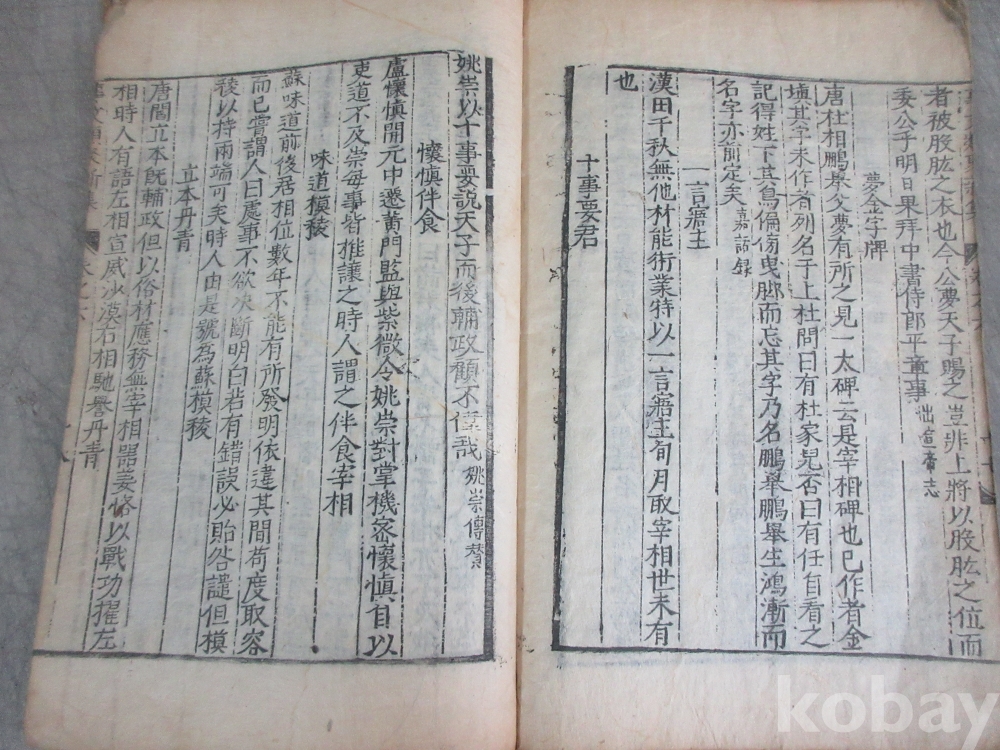 者被股肱之衣也今公夢天子賜之豈非上將以股肱之位而
委公乎明日果拜中書侍郎平章事
夢金字牌
唐杜相鵬舉父夢有所之見一太碑云是宰相碑也已作者金
塡其字未作者列名于上杜問曰有杜家兒否曰有任自看之
記得姓下其鳥偏傍曳脚而忘其字乃名鵬舉鵬舉生鴻漸而
名字亦前定矣 嘉話錄
一言寤主
漢田千秋無他材能術業特以一言寤主旬月取宰相世未有
也
十事要君
姚崇以十事要說天子而後輔政顧不偉哉 姚崇傳贊
懷慎伴食
盧懷慎開元中遷黃門監與紫微令姚崇對掌機宻懷慎自以
吏道不及崇每事皆推讓之時人謂之伴食宰相
味道模稜
蘇味道前後居相位數年不能有所發明依違其間苟度取容
而已嘗謂人曰處事不欲决斷明白若有錯誤必貽咎譴但模
稜以持兩端可矣時人由是號為蘇模稜
立本丹青
唐閻立本旣輔政但以俗材應務無宰相器姜恪以戰功擢左
相時人有語左相宣威沙漠右相馳譽丹青
kobay